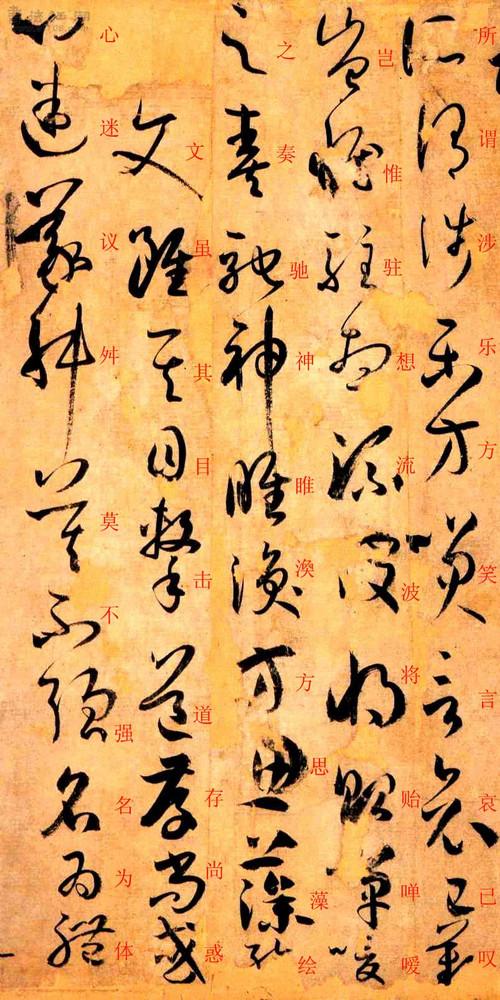 所谓涉乐方笑言哀己叹
岂惟驻想流波将贻啴喛
之奏驰神睢涣方思藻绘
文虽其目击道存尚惑
心迷议舛莫不强名为体